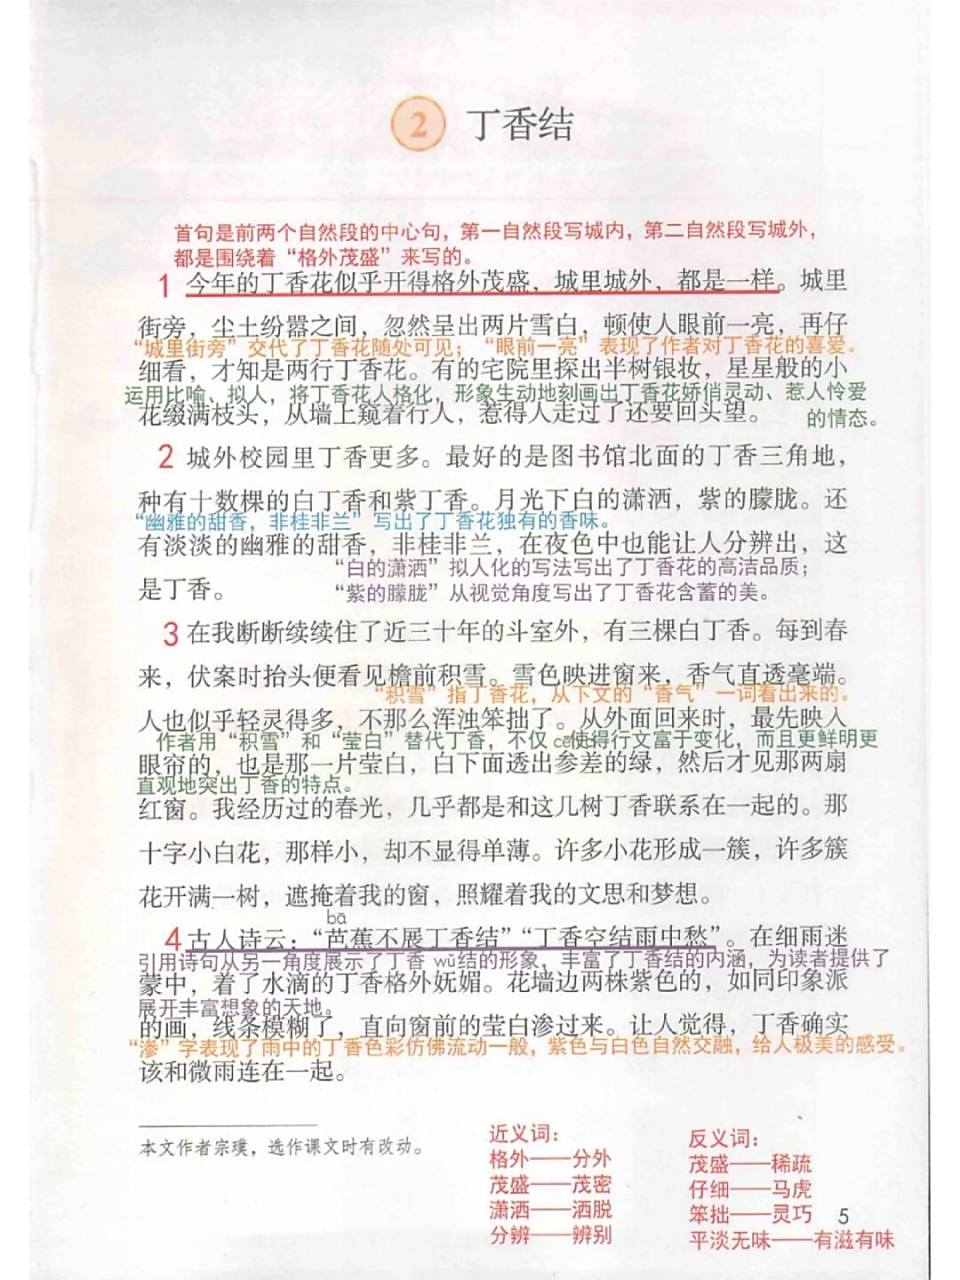 2 丁香结
首句是前两个自然段的中心句，第一自然段写城内，第二自然段写城外，
都是围绕着“格外茂盛”来写的。
1 今年的丁香花似乎开得格外茂盛，城里城外，都是一样。城里
街旁，尘土纷嚣之间，忽然呈出两片雪白，顿使人眼前一亮，再仔
“城里街旁”交代了丁香花随处可见；“眼前一亮”表现了作者对丁香花的喜爱。
细看，才知是两行丁香花。有的宅院里探出半树银妆，星星般的小
运用比喻、拟人，将丁香花人格化，形象生动地刻画出丁香花娇俏灵动、惹人怜爱
花缀满枝头，从墙上窥着行人，惹得人走过了还要回头望。
的情态。
2 城外校园里丁香更多。最好的是图书馆北面的丁香三角地，
种有十数棵的白丁香和紫丁香。月光下白的潇洒，紫的朦胧。还
“幽雅的甜香，非桂非兰”写出了丁香花独有的香味。
有淡淡的幽雅的甜香，非桂非兰，在夜色中也能让人分辨出，这
“白的潇洒”拟人化的写法写出了丁香花的高洁品质；
是丁香。
“紫的朦胧”从视觉角度写出了丁香花含蓄的美。
3 在我断断续续住了近三十年的斗室外，有三棵白丁香。每到春
来，伏案时抬头便看见檐前积雪。雪色映进窗来，香气直透毫端。
“积雪”指丁香花，从下文的“香气”一词看出来的。
人也似乎轻灵得多，不那么浑浊笨拙了。从外面回来时，最先映入
作者用“积雪”和“莹白”替代丁香，不仅使得行文富于变化，而且更鲜明更
眼帘的，也是那一片莹白，白下面透出参差的绿，然后才见那两扇
直观地突出丁香的特点。
红窗。我经历过的春光，几乎都是和这几树丁香联系在一起的。那
十字小白花，那样小，却不显得单薄。许多小花形成一簇，许多簇
花开满一树，遮掩着我的窗，照耀着我的文思和梦想。
bā
4 古人诗云：“芭蕉不展丁香结”“丁香空结雨中愁”。在细雨迷
引用诗句从另一角度展示了丁香 wǔ结的形象，丰富了丁香结的内涵，为读者提供了
蒙中，着了水滴的丁香格外妩媚。花墙边两株紫色的，如同印象派
展开丰富想象的天地。
的画，线条模糊了，直向窗前的莹白渗过来。让人觉得，丁香确实
“渗”字表现了雨中的丁香色彩仿佛流动一般，紫色与白色自然交融，给人极美的感受。
该和微雨连在一起。
本文作者宗璞，选作课文时有改动。
近义词：
格外——分外
茂盛——茂密
潇洒——洒脱
分辨——辨别
反义词：
茂盛——稀疏
仔细——马虎
笨拙——灵巧
平淡无味——有滋有味
5